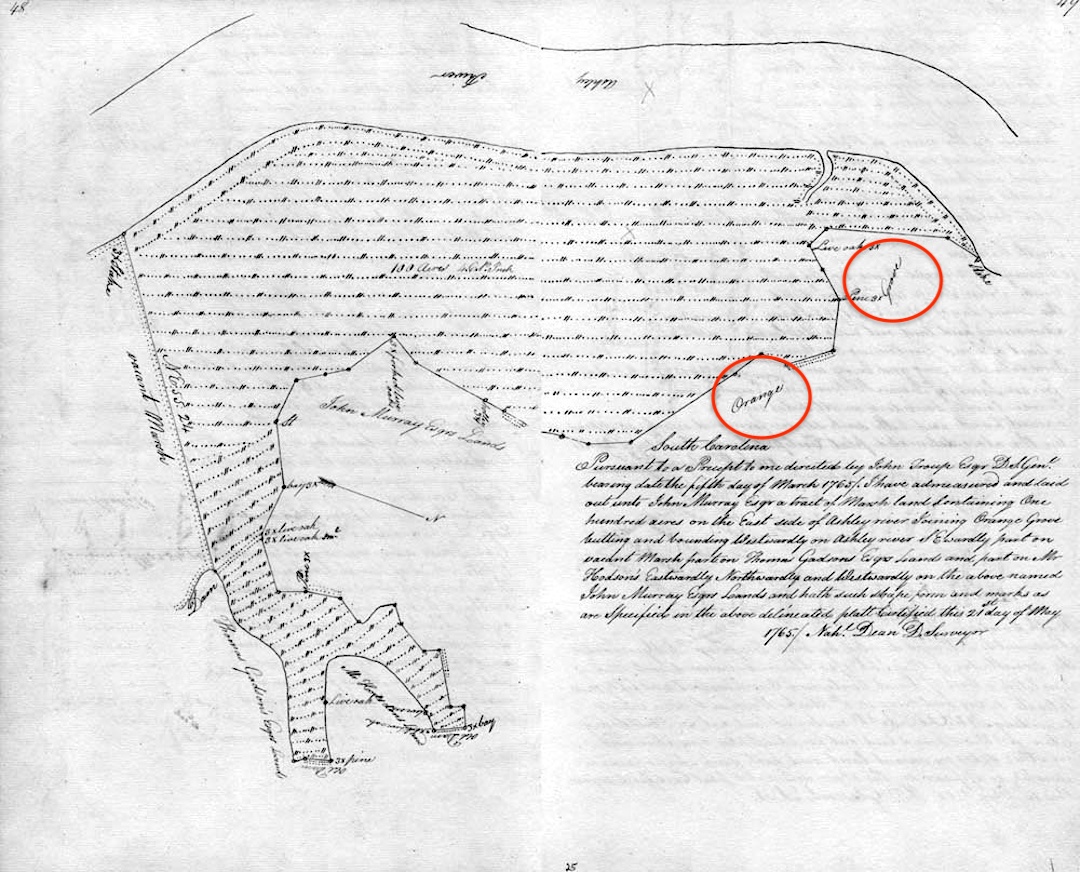 48
49
Ashley
River
Live oak 3x
Stake
3x Stake
100 Acres
Grove
Pine 3x
N 65 24
vacant Marsh
John Murray Esqrs Lands
Orange
St
bay 3x
N
3x live oak
3x live oak
Thomas Gadsons Esqrs Lands
Live oak
3x bay
old Dam
3x pine
old Dam
South Carolina
Pursuant to a Precept to me directed by John Troup Esqr D. S. Genl.
bearing date the fifth day of March 1765/. I have admeasured and laid
out unto John Murray Esqr a tract of Marsh land Containing One
hundred acres on the East side of Ashley river Joining Orange Grove
butting and bounding Westwardly on Ashley river S Elwardly part on
vacant Marsh part on Thomas Gadsons Esqrs Land and part on Mr
Hodsons Eastwardly Northwardly and Westwardly on the above named
John Murray Esqrs Lands and hath such shape form and marks as
are Specified in the above delineated platt Certified this 21st day of May
1765/ Nahl. Dean D. Surveyor
25